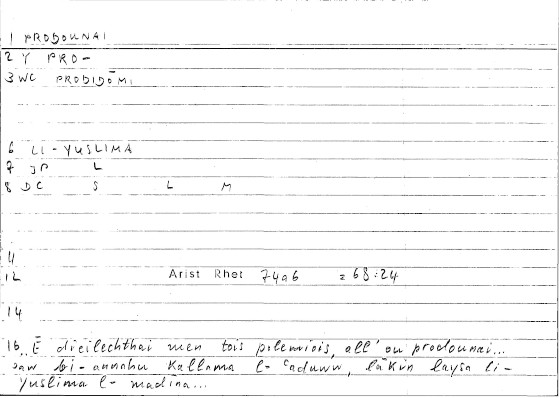 1 PRODOUNAI
2 Y PRO-
3 WC PRODIDŌMI
6 LI-YUSLIMA
7 JP L
8 DC S L M
4
12 Arist Rhet 74a6 = 68:24
14
16 Ē dieilechthai men tois polemiois, all' ou prodounai...
aw bi-annahu kallama l-ʿaduww, lākin laysa li-
yuslima l-madīna...